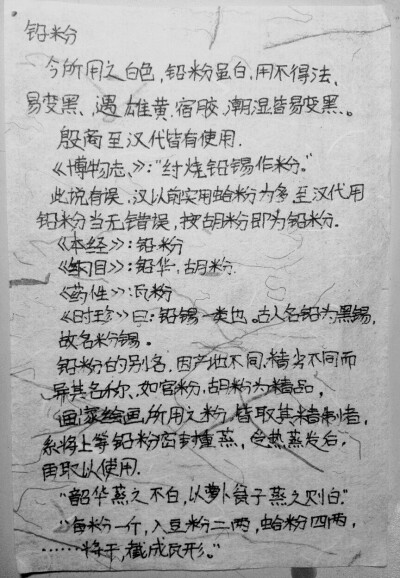 铅粉
今所用之白色,铅粉虽白,用不得法、
易变黑、遇雄黄、宿胶、潮湿皆易变黑、。
殷商至汉代皆有使用.
《博物志、》:“纣烧铅锡作粉。”
此说有误、汉以前实用蛤粉为多至汉代用
铅粉当无错误,按胡粉即为铅粉.
《本经》:铅粉
《纲目》:铅华,胡粉.
《药性》:瓦粉
《时珍》曰:铅锡一类也。古人名铅为黑锡,
故名粉锡。
铅粉的别名.因产地不同.精劣不同而
异其名称、如官粉,胡粉为精品,
画漆绘画所用之粉,皆取其精制者,
系将上等铅粉密封熏蒸,受热蒸发后,
再取以使用.
“韶华蒸之不白,以萝卜瓮子蒸之则白.”
“每粉一斤,入豆粉二两,蛤粉四两,
……将干,截成瓦形。”